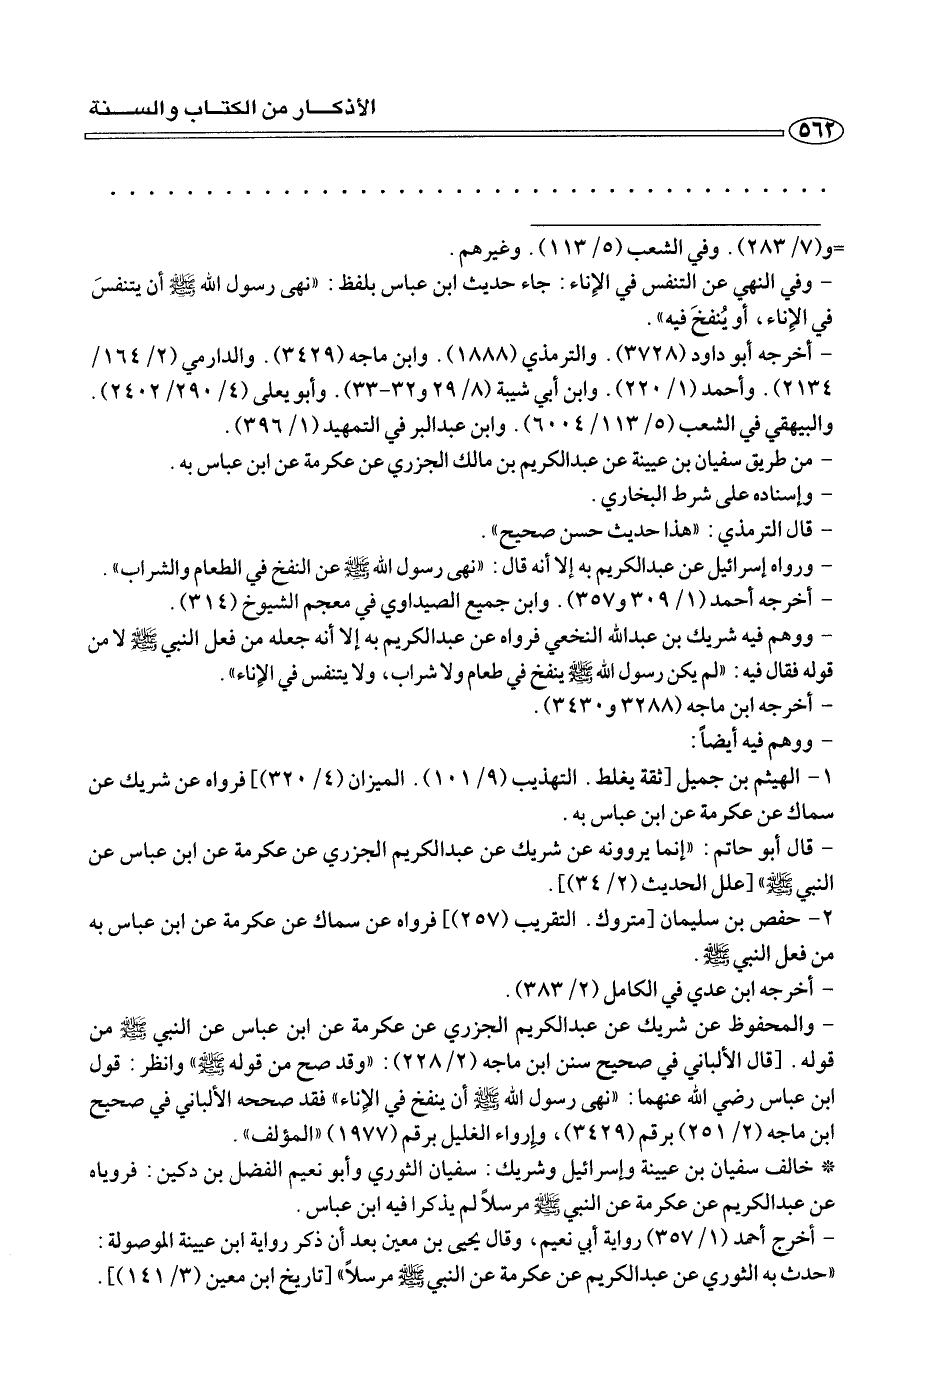 الأذكـــار من الكتـاب والســـنة
٥٦٢
. . . . . . . . . . . . . . . . . . . . . . . . . . . . . . . . . . . . . .
=و(٧/ ٢٨٣). وفي الشعب (٥/ ١١٣). وغيرهم.
– وفي النهي عن التنفس في الإناء: جاء حديث ابن عباس بلفظ: «نهى رسول الله ﷺ أن يتنفسَ
في الإناء، أو يُنفخَ فيه».
– أخرجه أبو داود (٣٧٢٨). والترمذي (١٨٨٨). وابن ماجه (٣٤٢٩). والدارمي (٢/ ١٦٤/
٢١٣٤). وأحمد (١/ ٢٢٠). وابن أبي شيبة (٨/ ٢٩ و٣٢-٣٣). وأبو يعلى (٤/ ٢٩٠/ ٢٤٠٢).
والبيهقي في الشعب (٥/ ١١٣/ ٦٠٠٤). وابن عبدالبر في التمهيد (١/ ٣٩٦).
– من طريق سفيان بن عيينة عن عبدالكريم بن مالك الجزري عن عكرمة عن ابن عباس به.
– وإسناده على شرط البخاري.
– قال الترمذي: «هذا حديث حسن صحيح».
– ورواه إسرائيل عن عبدالكريم به إلا أنه قال: «نهى رسول الله ﷺ عن النفخ في الطعام والشراب».
– أخرجه أحمد (١/ ٣٠٩ و٣٥٧). وابن جميع الصيداوي في معجم الشيوخ (٣١٤).
– ووهم فيه شريك بن عبدالله النخعي فرواه عن عبدالكريم به إلا أنه جعله من فعل النبي ﷺ لا من
قوله فقال فيه: «لم يكن رسول الله ﷺ ينفخ في طعام ولا شراب، ولا يتنفس في الإناء».
– أخرجه ابن ماجه (٣٢٨٨ و٣٤٣٠).
– ووهم فيه أيضاً:
١- الهيثم بن جميل [ثقة يغلط. التهذيب (٩/ ١٠١). الميزان (٤/ ٣٢٠)] فرواه عن شريك عن
سماك عن عكرمة عن ابن عباس به.
– قال أبو حاتم: «إنما يروونه عن شريك عن عبدالكريم الجزري عن عكرمة عن ابن عباس عن
النبي ﷺ» [علل الحديث (٢/ ٣٤)].
٢- حفص بن سليمان [متروك. التقريب (٢٥٧)] فرواه عن سماك عن عكرمة عن ابن عباس به
من فعل النبي ﷺ.
– أخرجه ابن عدي في الكامل (٢/ ٣٨٣).
– والمحفوظ عن شريك عن عبدالكريم الجزري عن عكرمة عن ابن عباس عن النبي ﷺ من
قوله. [قال الألباني في صحيح سنن ابن ماجه (٢/ ٢٢٨): «وقد صح من قوله ﷺ» وانظر: قول
ابن عباس رضي الله عنهما: «نهى رسول الله ﷺ أن ينفخ في الإناء» فقد صححه الألباني في صحيح
ابن ماجه (٢/ ٢٥١) برقم (٣٤٢٩)، وإرواء الغليل برقم (١٩٧٧) «المؤلف».
* خالف سفيان بن عيينة وإسرائيل وشريك: سفيان الثوري وأبو نعيم الفضل بن دكين: فروياه
عن عبدالكريم عن عكرمة عن النبي ﷺ مرسلاً لم يذكرا فيه ابن عباس.
– أخرج أحمد (١/ ٣٥٧) رواية أبي نعيم، وقال يحيى بن معين بعد أن ذكر رواية ابن عيينة الموصولة:
«حدث به الثوري عن عبدالكريم عن عكرمة عن النبي ﷺ مرسلاً» [تاريخ ابن معين (٣/ ١٤١)].